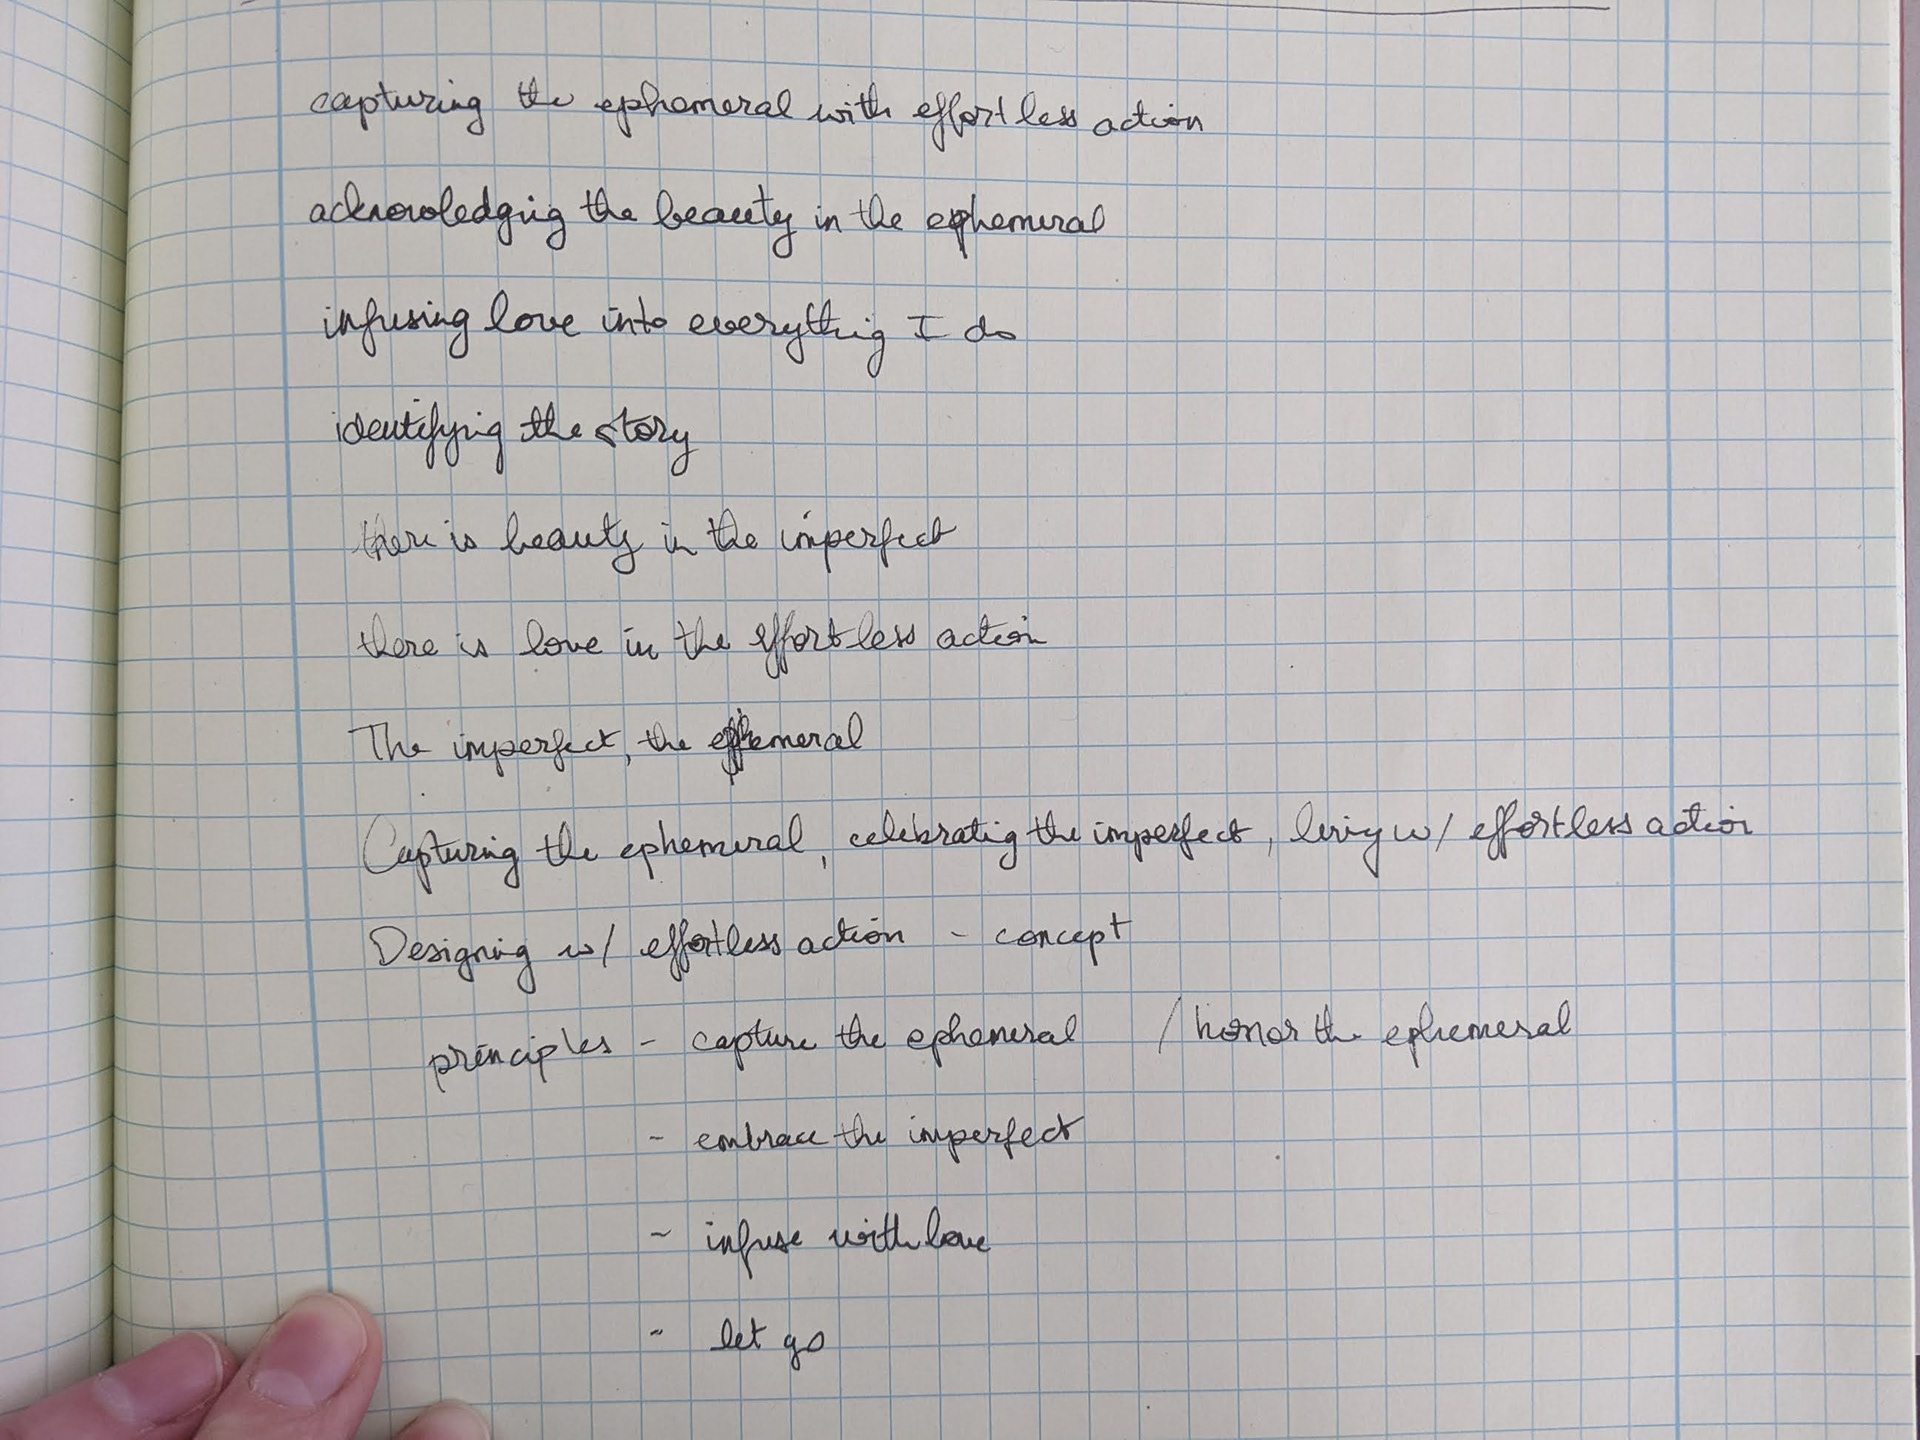 capturing the ephemeral with effortless action
acknowledging the beauty in the ephemeral
infusing love into everything I do
identifying the story
there is beauty in the imperfect
there is love in the effortless action
The imperfect, the ephemeral
Capturing the ephemeral, celebrating the imperfect, living w/ effortless action
Designing w/ effortless action - concept
principles - capture the ephemeral / honor the ephemeral
- embrace the imperfect
- infuse with love
- let go